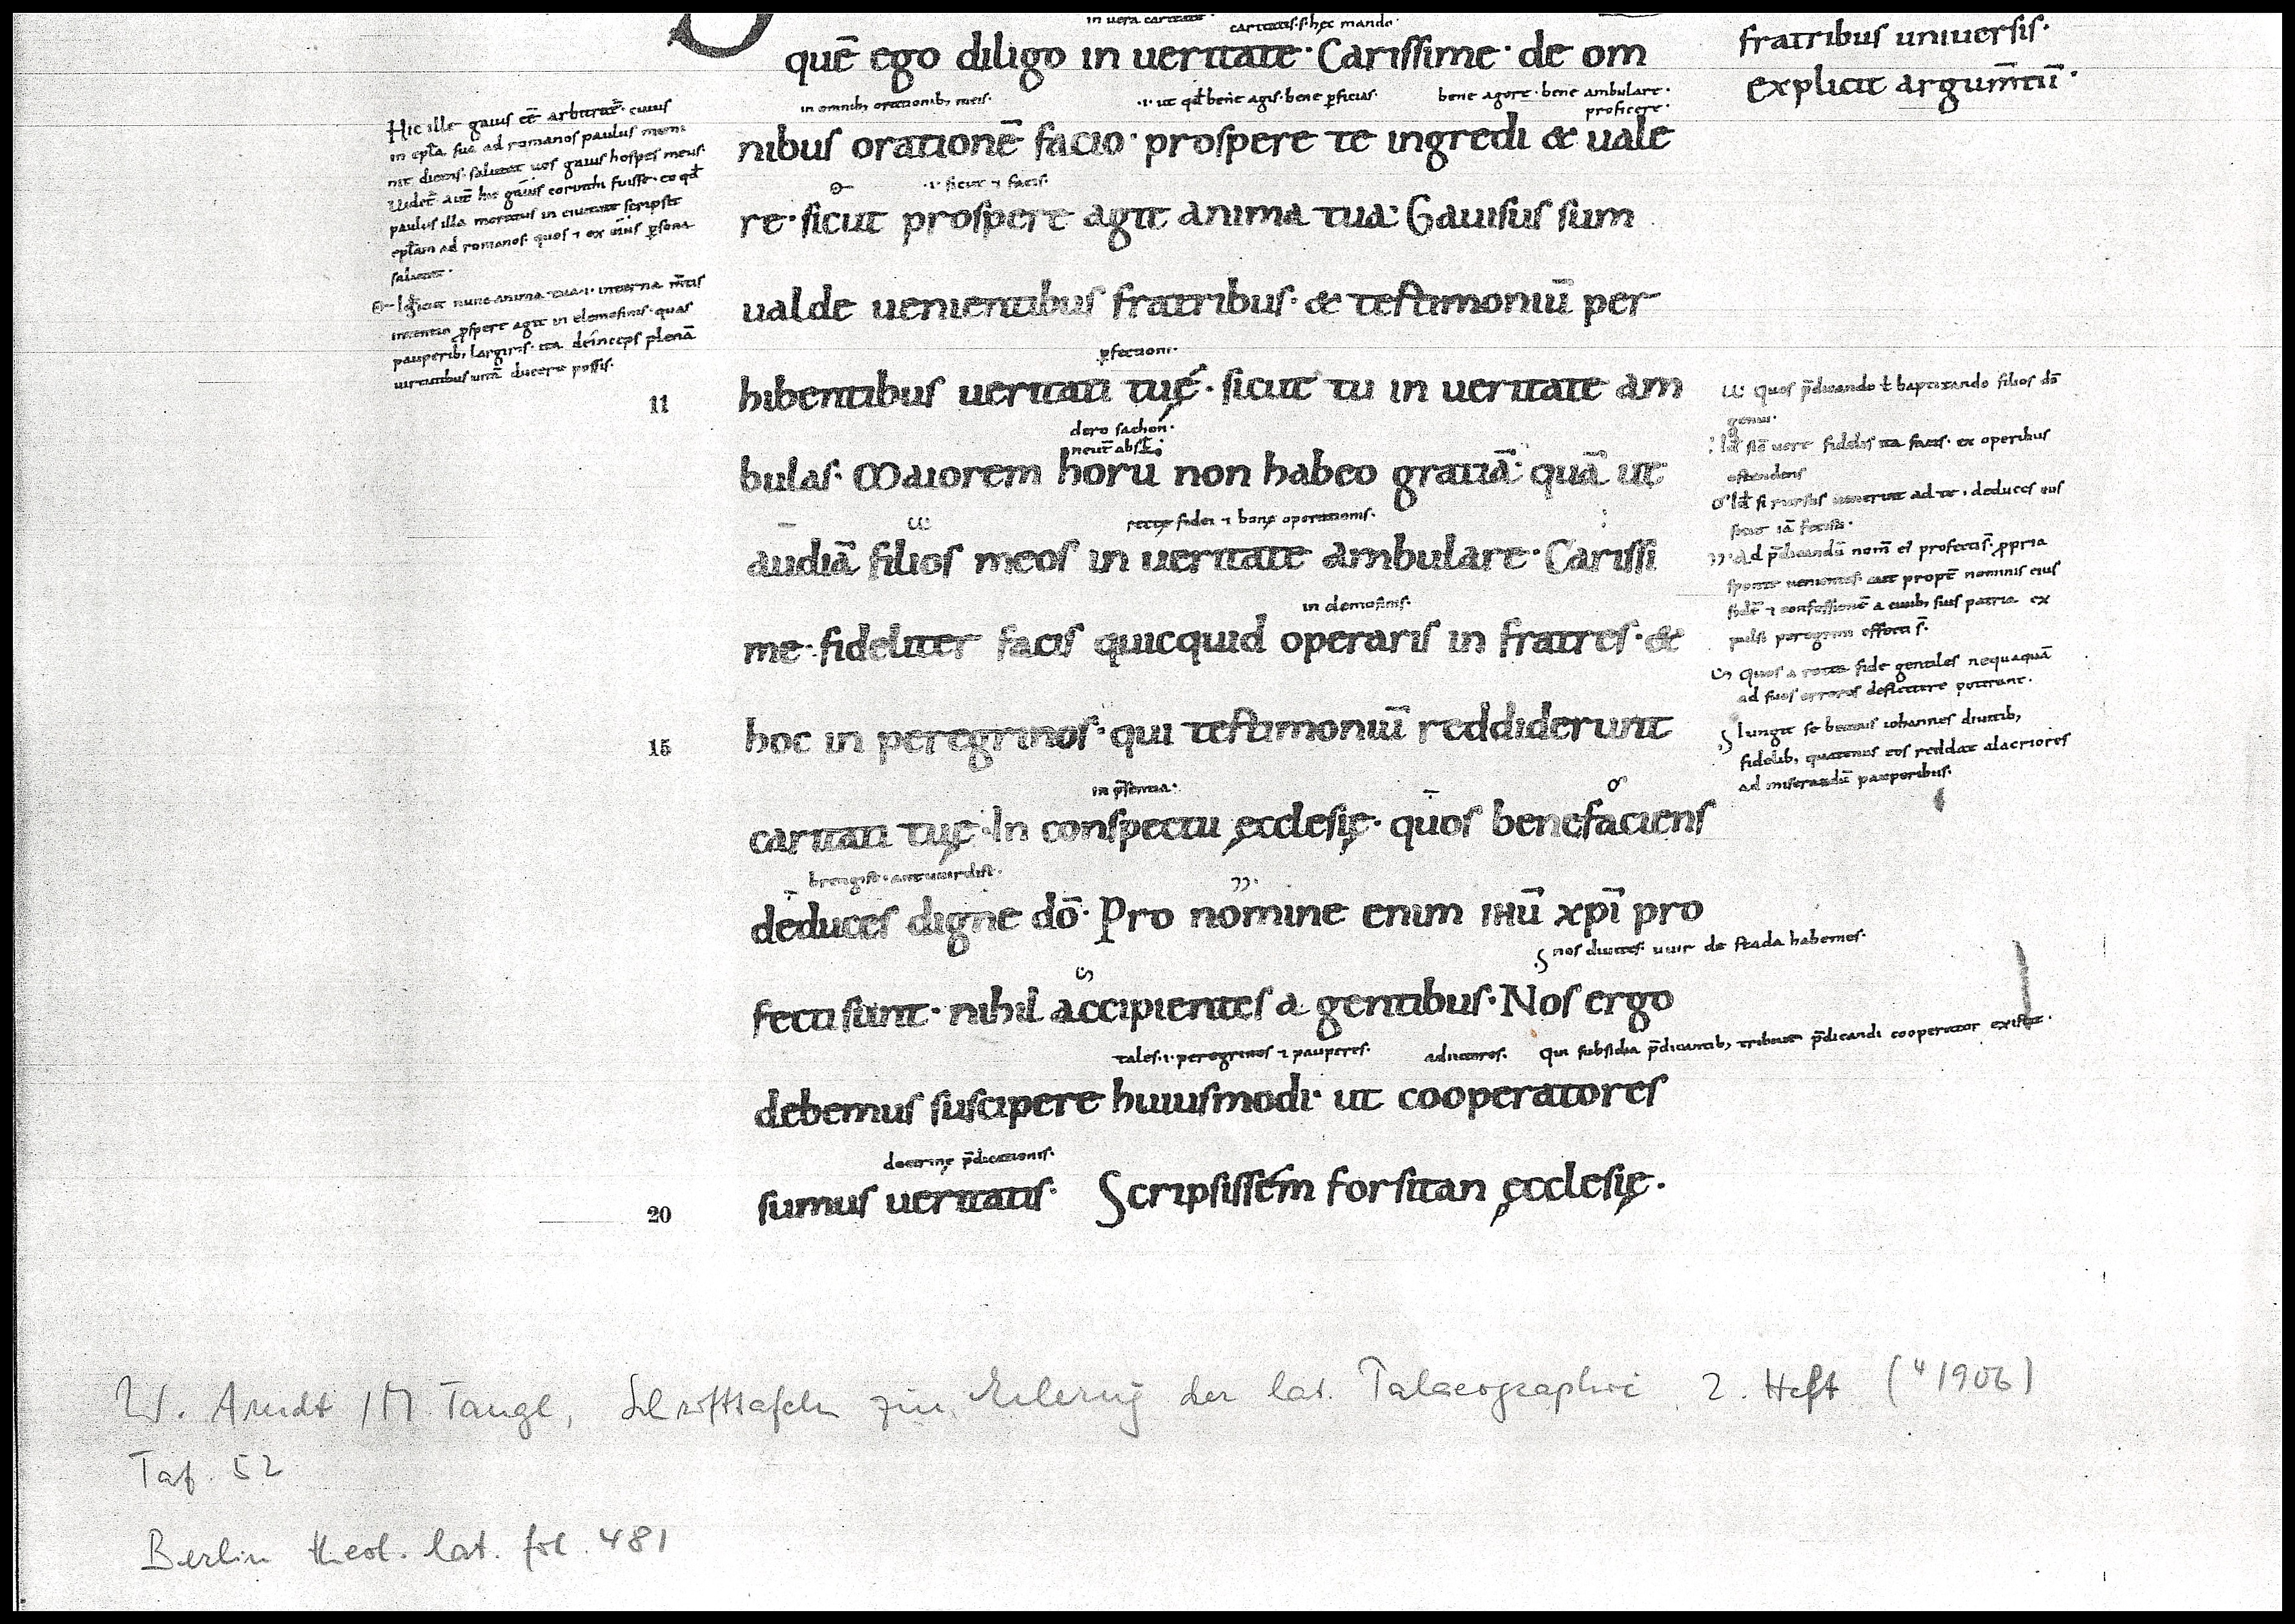 in uera caritate · caritatis · s · hęc mando ·
quē ego diligo in ueritate · Carissime · de om
in omnib; orationib; meis ·
· i · ut qđ bene agis · bene ꝑficias ·
bene agere · bene ambulare ·
proficere ·
nibus orationē facio · prospere te ingredi & uale
· i · sicut ⁊ facis ·
re · sicut prospere agit anima tua : Gauisus sum
ualde uenientibus fratribus · & testimoniū per
ꝑfectioni ·
11 hibentibus ueritati tuę · sicut tu in ueritate am
dero sachon ·
bulas · Maiorem horū non habeo gratiā · quā ut
rectę fidei ⁊ bonę operationis ·
audiā filios meos in ueritate ambulare · Carissi
in elemosinis ·
me · fideliter facis quicquid operaris in fratres · &
15 hoc in peregrinos · qui testimoniū reddiderunt
in p̄sentia ·
caritati tuę · In conspectu ęcclesię · quos benefaciens
deduces digne dō · Pro nomine enim ihū xpī pro
nos diuites · uuir de stada habemes ·
fecti sunt · nihil accipientes a gentibus · Nos ergo
tales · i · peregrinos ⁊ pauperes ·
adiutores ·
qui subsidia p̄dicantib; tribuit p̄dicandi cooperator existit ·
debemus suscipere huiusmodi · ut cooperatores
doctrinę p̄dicationis ·
20 sumus ueritatis · Scripsissem forsitan ęcclesię ·
Hic ille gaius eē arbitrat̄ · cuius
in epła sua ad romanos paulus memi
nit dicens · salutat uos gaius hospes meus ·
Uidet̄ aut̄ hic gaius corinthi fuisse · eo qđ
paulus illa moratus in ciuitate scripsit
epłam ad romanos · quos ⁊ ex eius ꝑsona
salutat ·
sicut nunc anima tua · i · interna m̄tis
intentio ꝓspere agit in elemosinis · quas
pauperib; largiris · ita deinceps plenā
uirtutibus uitā ducere possis ·
fratribus uniuersis ·
explicit argum̄tū ·
quos p̄dicando ł baptizando filios dō
genui ·
uere fidelis ita facis · ex operibus
ostendens
si rursus uenerint ad te · deduces eos
sicut iā fecisti ·
ad p̄dicandū nom̄ ei profecti s̄ · ꝓpria
sponte uenientes · aut propt̄ nominis eius
fidē ⁊ confessionē a ciuib; suis patria ex
pulsi peregrini effecti s̄ ·
quos a recta fide gentiles nequaquā
ad suos errores deflectere poterant ·
Iungit se beatus iohannes diuitib;
fidelib; quatenus eos reddat alacriores
ad miserandū pauperibus ·
W. Arndt / M Tangl, Schrifttafeln zur Erlernung der lat. Palaeographie 2. Heft (⁴1906)
Taf. 52
Berlin theol. lat. fol. 481